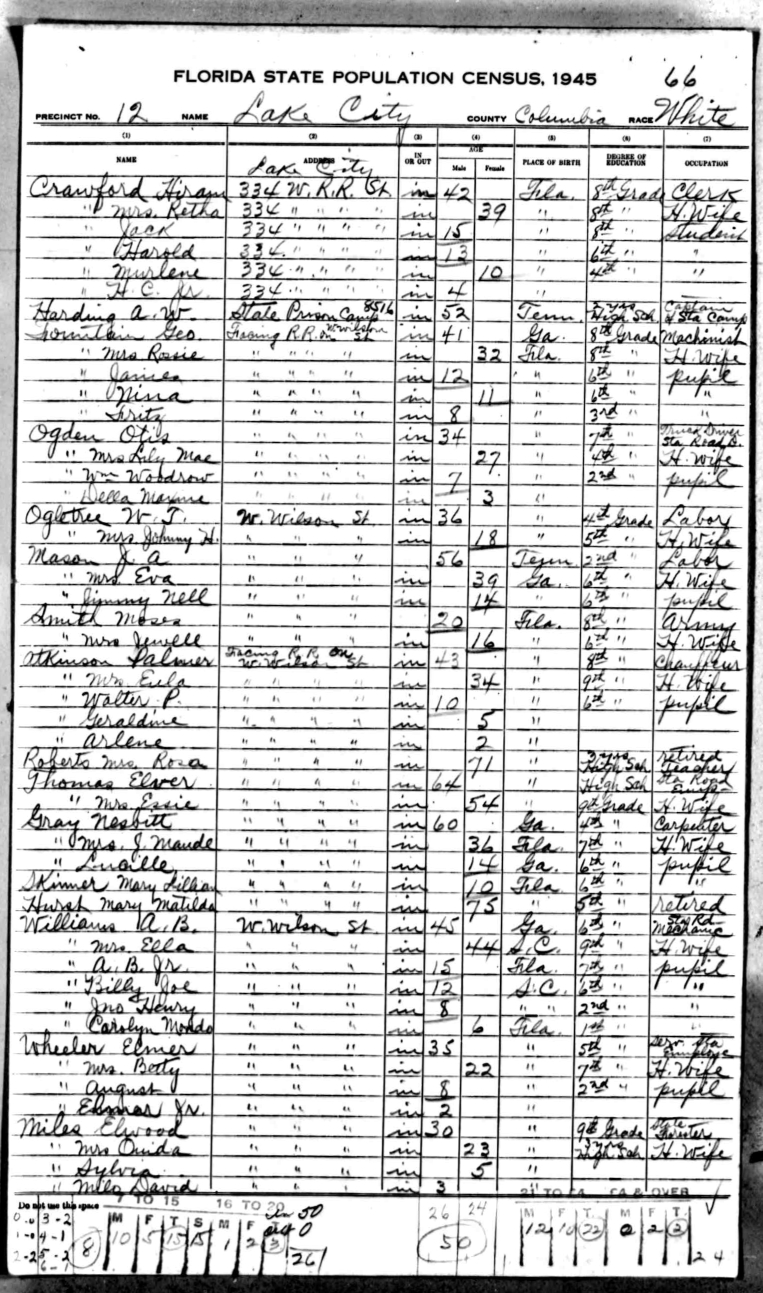 FLORIDA STATE POPULATION CENSUS, 1945 66
PRECINCT NO. 12 NAME Lake City COUNTY Columbia RACE White
(1) (2) (3) (4) (5) (6) (7)
NAME ADDRESS IN OR OUT AGE Male Female PLACE OF BIRTH DEGREE OF EDUCATION OCCUPATION
Lake City
Crawford Hiram 334 W. R.R. St in 42 Fla. 8th Grade Clerk
" Mrs. Retha 334 " " " " in 39 " 8th " H. Wife
" Jack 334 " " " " in 15 " 8th " student
" Harold 334 " " " " in 13 " 6th " "
" Murlene 334 " " " " in 10 " 4th " "
" H. C. Jr. 334 " " " " in 4 "
Harding A. W. State Prison Camp 8516 in 52 Tenn. 2 yrs High Sch Captain Sta Camp
Fountain Geo. Facing R.R. on W. Wilson St in 41 Ga. 8th Grade Machinist
" Mrs Rossie " " " " in 32 Fla. 8th " H. Wife
" James " " " " in 12 " 6th " pupil
" Nina " " " " in 11 " 6th " "
" Fritz " " " " in 8 " 3rd " "
Ogden Otis " " " " in 34 " 7th " Truck Driver Sta Road D.
" Mrs Lily Mae " " " " in 27 " 4th " H. Wife
" Wm Woodrow " " " " in 7 " 2nd " pupil
" Della Maxine " " " " in 3 "
Ogletree W. T. W. Wilson St in 36 " 4th Grade Labor
" Mrs. Johnny H. " " " in 18 " 5th " H. Wife
Mason J. A " " " 56 Tenn 2nd " Labor
" Mrs Eva " " " in 39 Ga. 6th " H. Wife
" Jimmy Nell " " " in 14 " 6th " pupil
Smith Moses " " " 20 Fla. 8th " Army
" Mrs Jewell " " " in 16 " 6th " H. Wife
Atkinson Palmer Facing R.R. on W. Wilson St in 43 " 8th " Chauffeur
" Mrs. Eula " " " " in 34 " 9th " H. Wife
" Walter P. " " " " in 10 " 6th " pupil
" Geraldine " " " " in 5 "
" Arlene " " " " in 2 "
Roberts Mrs. Rosa " " " " in 71 " 3 yrs High Sch retired Teacher
Thomas Elver " " " " in 64 " High Sch Sta Road
" Mrs. Essie " " " " in 54 " 9th Grade H. Wife
Gray Nesbitt " " " " in 60 Ga. 4th " Carpenter
" Mrs. J. Maude " " " " in 36 Fla. 7th " H. Wife
" Lucille " " " " in 14 Ga. 6th " pupil
Skinner Mary Lillian " " " " in 10 Fla 6th " "
Hurst Mary Matilda " " " " in 75 " 5th " retired
Williams A. B. W. Wilson St. in 45 Ga. 6th " Sta Rd Mechanic
" Mrs. Ella " " " in 44 S.C. 9th " H. Wife
" A. B. Jr. " " " in 15 Fla. 7th " pupil
" Billy Joe " " " in 12 S.C. 6th " "
" Jno Henry " " " in 8 " " 2nd " "
" Carolyn " " " in 6 Fla. 1st " "
Wheeler Elmer " " " in 35 " 5th " Serv. Sta Employe
" Mrs. Betty " " " in 22 " 7th " H. Wife
" August " " " in 8 " 2nd " pupil
" Elmar Jr. " " " in 2 "
Miles Elwood " " " in 30 " 9th Grade State Forester
" Mrs Ouida " " " in 23 " 3 yrs High Sch H. Wife
" Sylvia " " " in 5 "
" Milo David " " " in 3
Do not use this space 7 TO 15 16 TO 20 In 50 26 24 21 TO 64 64 & OVER
0-0 3-2 M F T. S M F out 0 M F T. M F T.
1-0 4-1 8 10 5 15 15 1 2 3 50 12 10 22 0 2 2
2-2 5-2 261 24